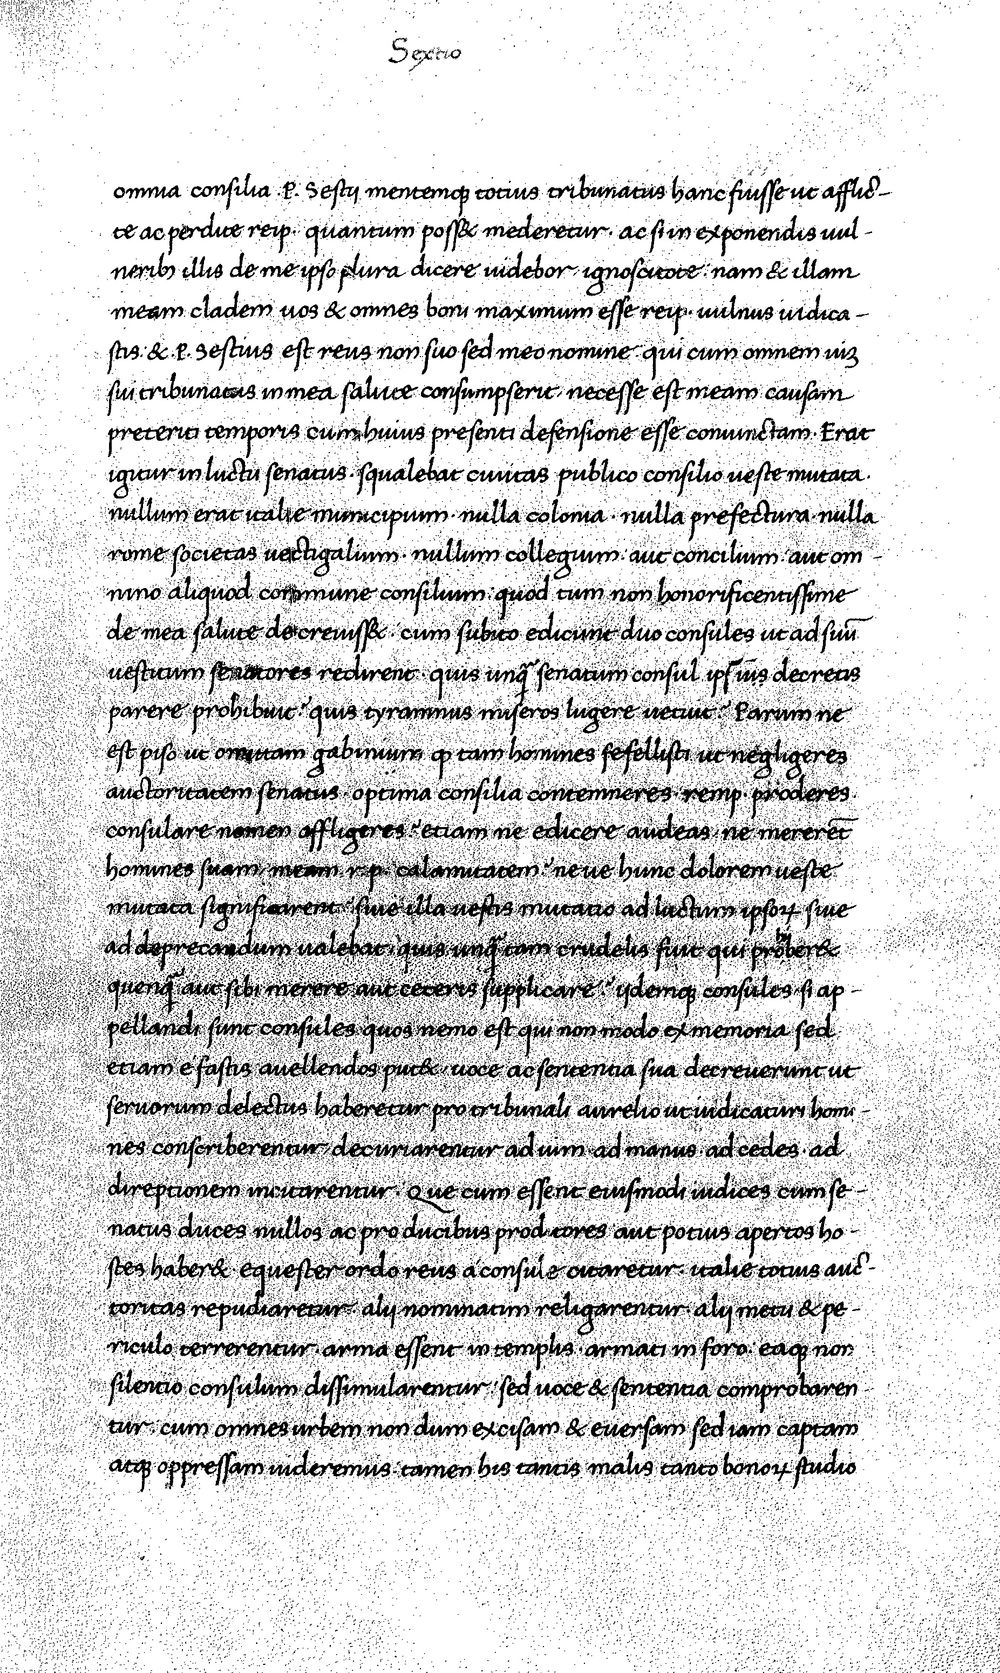 Sextio
omnia consilia .P. Sestij mentemq; totius tribunatus hanc fuisse ut afflic-
te ac perdite reip. quantum poss& mederetur. ac si in exponendis uul-
nerib; illis de me ipso plura dicere uidebor ignoscitote. nam & illam
meam cladem uos & omnes boni maximum esse reip. uulnus iudica-
stis. & .P. Sestius est reus non suo sed meo nomine qui cum omnem uim
sui tribunatus in mea salute consumpserit. necesse est meam causam
preteriti temporis cum huius presenti defensione esse coniunctam. Erat
igitur in luctu senatus. squalebat ciuitas publico consilio ueste mutata.
nullum erat italie municipium. nulla colonia. nulla prefectura. nulla
rome societas uectigalium. nullum collegium. aut concilium. aut om-
nino aliquod commune consilium. quod tum non honorificentissime
de mea salute decreuiss&. cum subito edicunt duo consules ut ad suū
uestitum senatores redirent. quis unq̄ senatum consul ipsius decretis
parere prohibuit? quis tyrannus miseros lugere uetuit? Parum ne
est piso ut omittam gabinium q tam homines fefellisti ut negligeres
auctoritatem senatus. optima consilia contemneres. remp. proderes.
consulare nomen affligeres? etiam ne edicere audeas. ne mereret̄
homines suam. meam r.p. calamitatem? neue hunc dolorem ueste
mutata significarent? siue illa uestis mutatio ad luctum ipsoꝝ siue
ad deprecandum ualebat. quis unq̄ tam crudelis fuit qui prohiber&
quenq̄ aut sibi merere aut ceteris supplicare? ijdemq; consules. si ap-
pellandi sunt consules quos nemo est qui non modo ex memoria sed
etiam e fastis auellendos put&. uoce ac sententia sua decreuerunt ut
seruorum delectus haberetur pro tribunali aurelio ut iudicaturi homi-
nes conscriberentur. decuriarentur ad uim. ad manus. ad cedes. ad
direptionem incitarentur. Que cum essent eiusmodi iudices cum se-
natus duces nullos ac pro ducibus proditores aut potius apertos ho-
stes haber& equester ordo reus a consule citaretur. italie totius auc-
toritas repudiaretur. alij nominatim religarentur. alij metu & pe-
riculo terrerentur. arma essent in templis. armati in foro. eaq; non
silentio consulum dissimularentur. sed uoce & sententia comprobaren
tur. cum omnes urbem non dum excisam & euersam sed iam captam
atq; oppressam uideremus. tamen his tantis malis tanto bonoꝝ studio